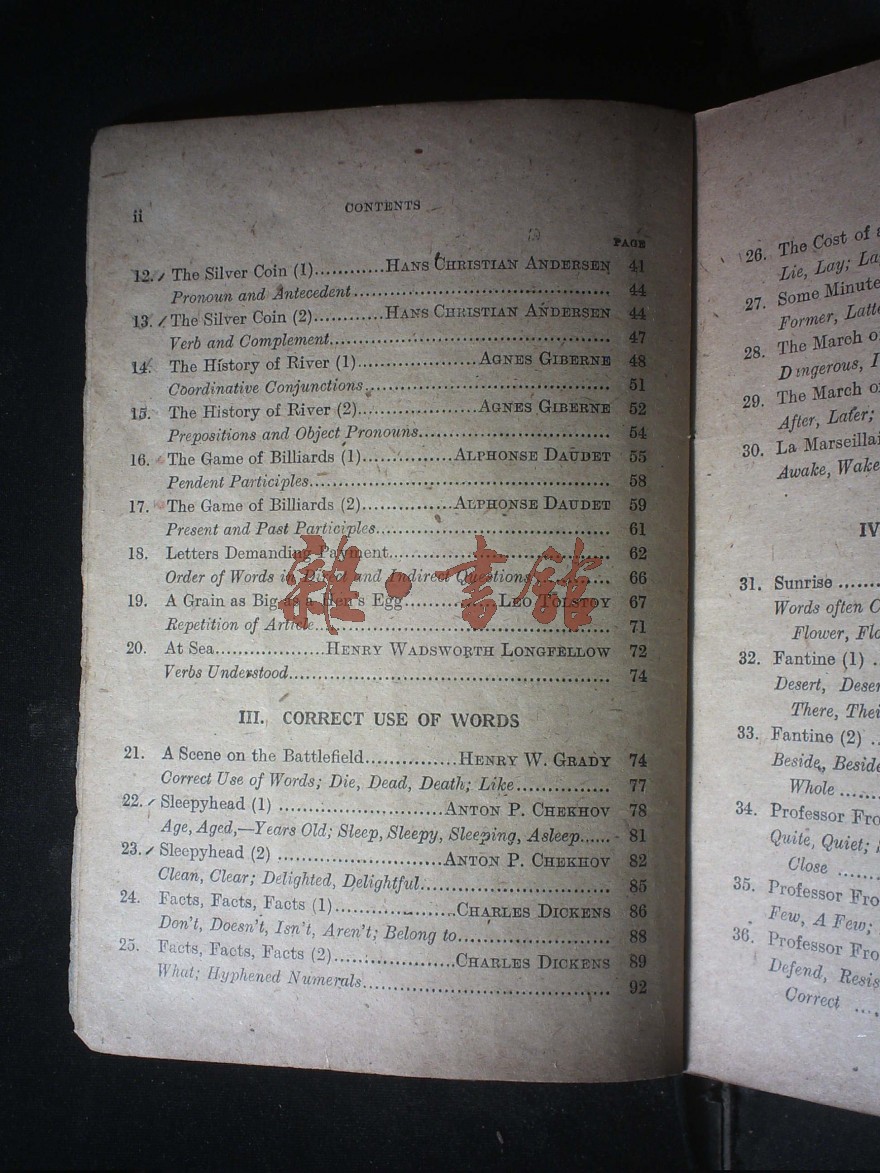 ii
CONTENTS
PAGE
12. The Silver Coin (1)............HANS CHRISTIAN ANDERSEN 41
Pronoun and Antecedent........................................ 44
13. The Silver Coin (2)............HANS CHRISTIAN ANDERSEN 44
Verb and Complement............................................ 47
14. The History of River (1)....................AGNES GIBERNE 48
Coordinative Conjunctions..................................... 51
15. The History of River (2)....................AGNES GIBERNE 52
Prepositions and Object Pronouns............................ 54
16. The Game of Billiards (1)...............ALPHONSE DAUDET 55
Pendent Participles............................................. 58
17. The Game of Billiards (2)...............ALPHONSE DAUDET 59
Present and Past Participles................................... 61
18. Letters Demanding Payment................................. 62
Order of Words in Direct and Indirect Questions............ 66
19. A Grain as Big as a Hen's Egg...............LEO TOLSTOY 67
Repetition of Article............................................ 71
20. At Sea...................HENRY WADSWORTH LONGFELLOW 72
Verbs Understood............................................... 74
III. CORRECT USE OF WORDS
21. A Scene on the Battlefield...............HENRY W. GRADY 74
Correct Use of Words; Die, Dead, Death; Like............... 77
22. Sleepyhead (1) ...........................ANTON P. CHEKHOV 78
Age, Aged,—Years Old; Sleep, Sleepy, Sleeping, Asleep...... 81
23. Sleepyhead (2) ...........................ANTON P. CHEKHOV 82
Clean, Clear; Delighted, Delightful............................ 85
24. Facts, Facts, Facts (1)....................CHARLES DICKENS 86
Don't, Doesn't, Isn't, Aren't; Belong to....................... 88
25. Facts, Facts, Facts (2)....................CHARLES DICKENS 89
What; Hyphened Numerals..................................... 92
雜·書館
26. The Cost of
Lie, Lay;
27. Some Minute
Former,
28. The March
Dangerous,
29. The March
After, Later;
30. La
Awake, Wake
IV
31. Sunrise
Words often
Flower,
32. Fantine (1)
Desert,
There,
33. Fantine (2)
Beside,
Whole
34. Professor
Quite, Quiet;
Close
35. Professor
Few, A Few;
36. Professor
Defend,
Correct